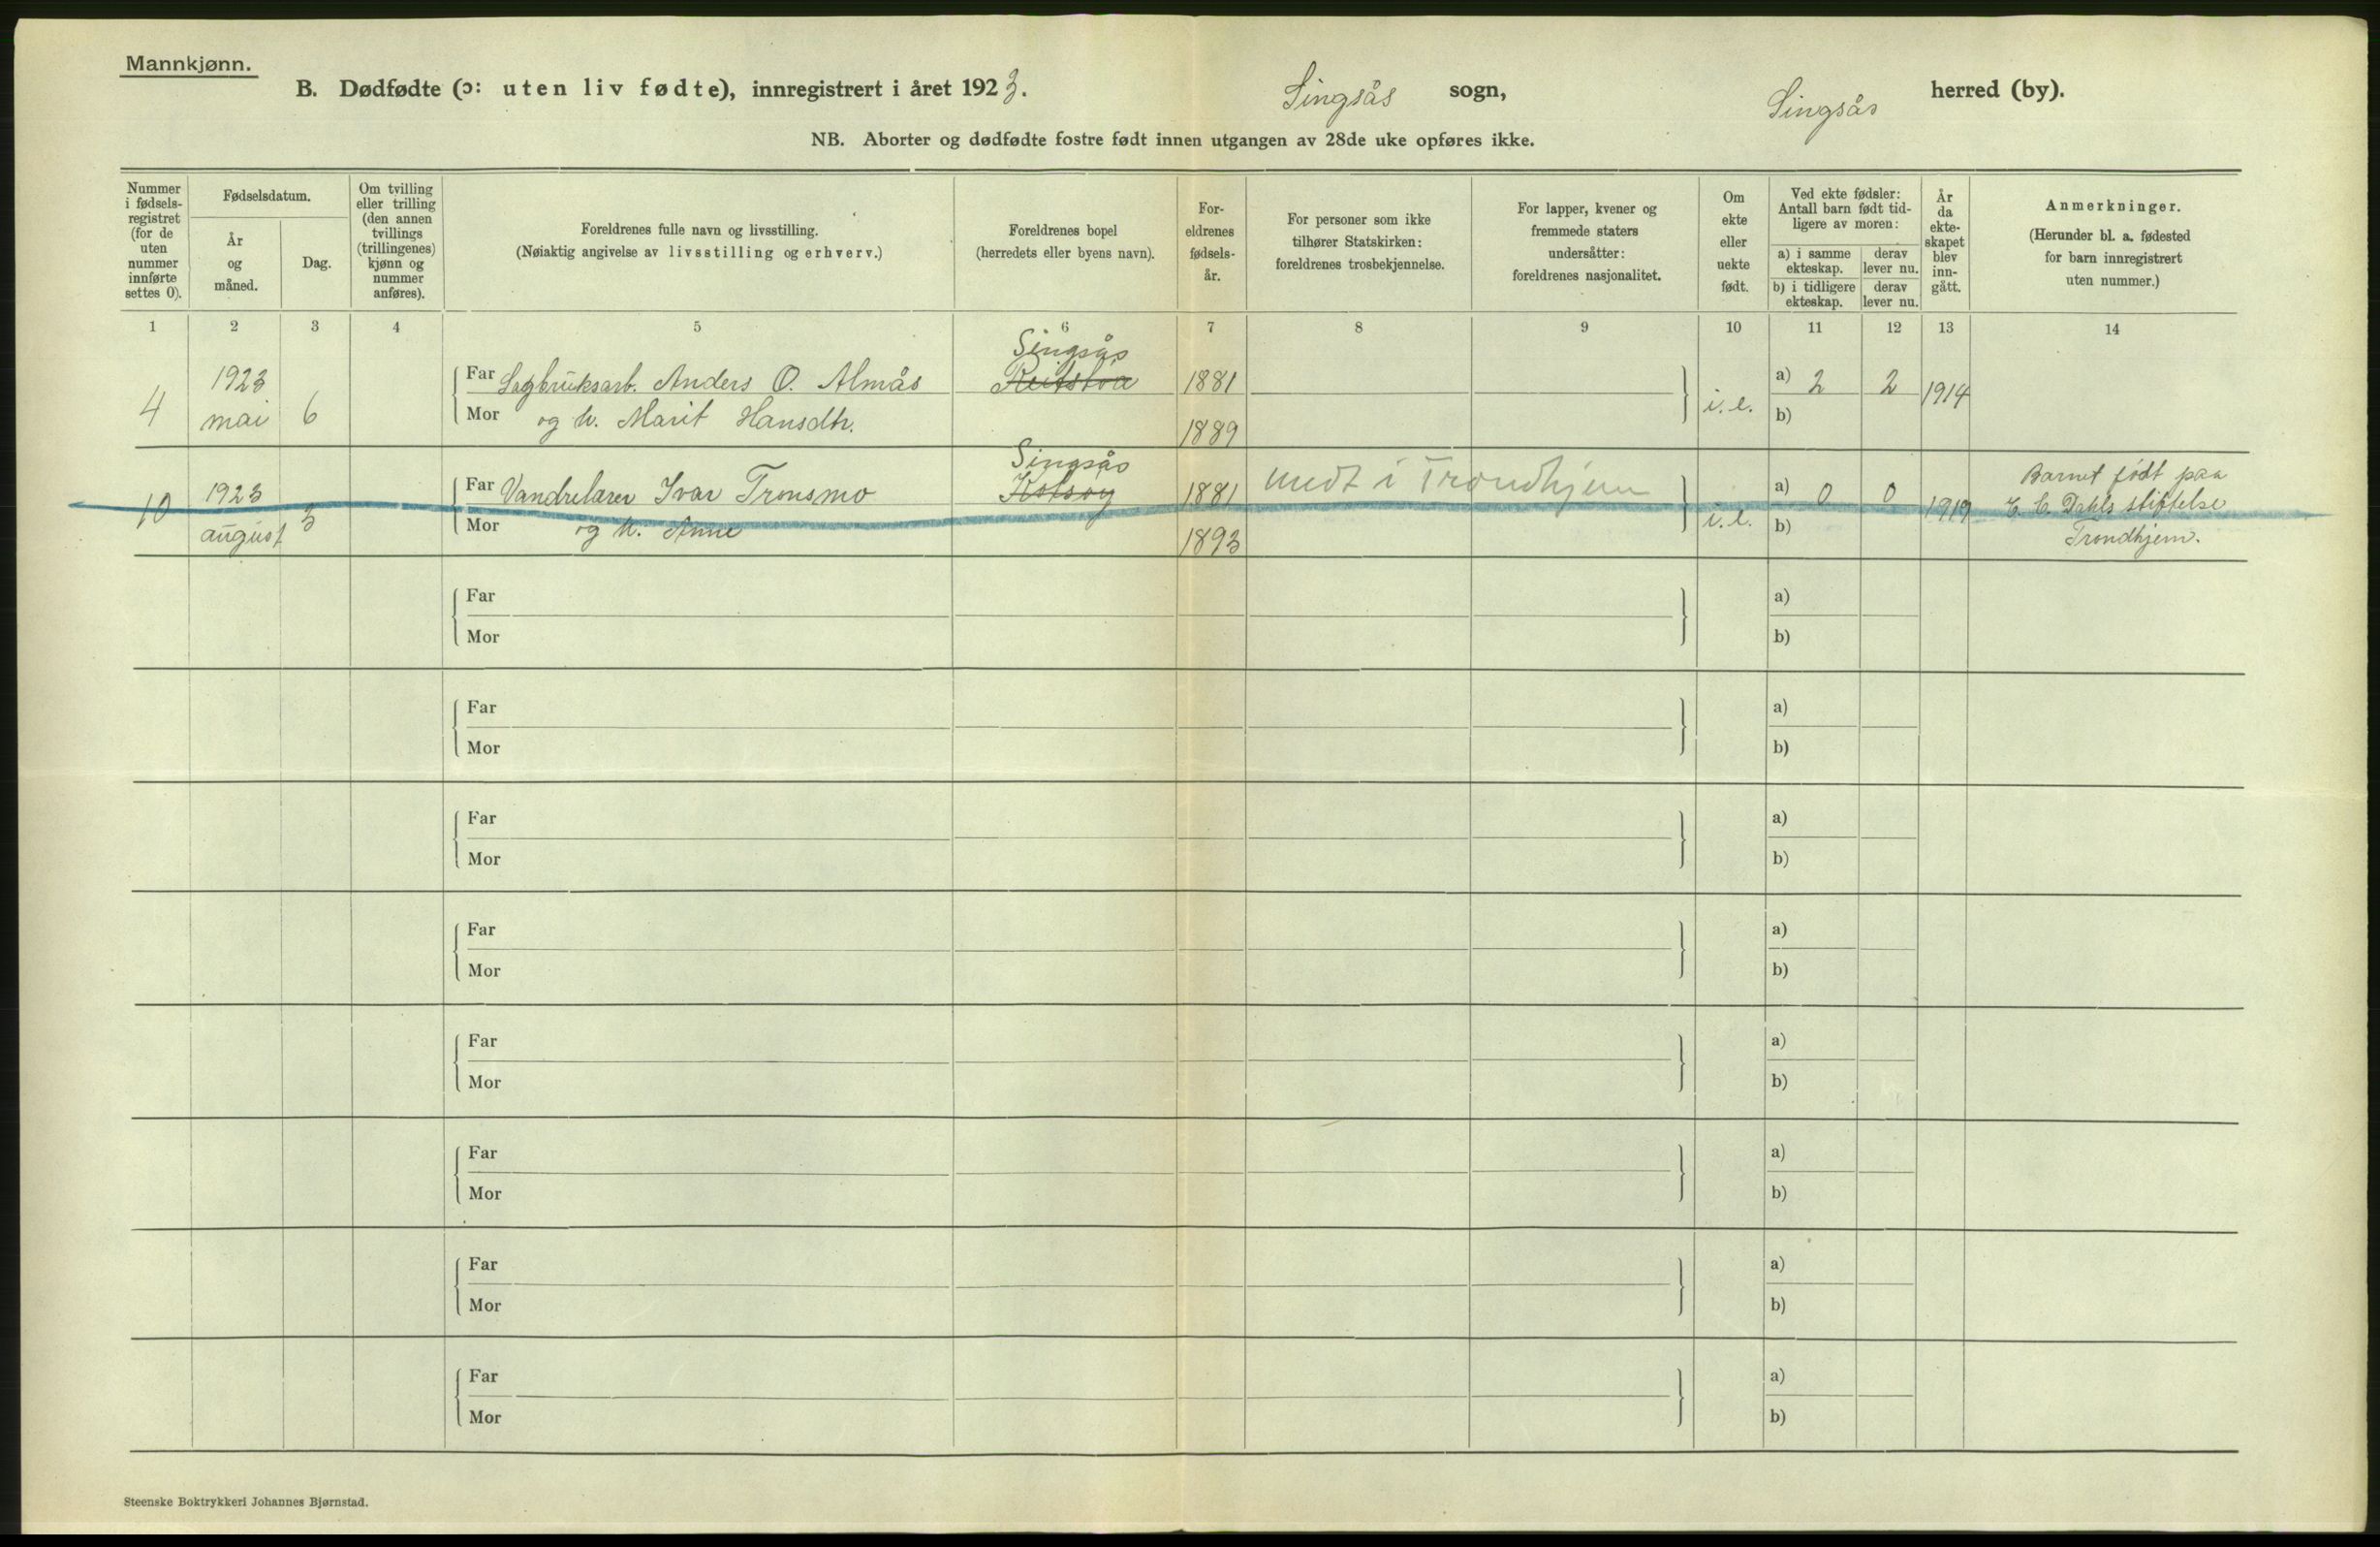 Mannkjønn.
B. Dødfødte (ɔ: uten liv fødte), innregistrert i året 1923.
Singsås sogn,
Singsås herred (by).
NB. Aborter og dødfødte fostre født innen utgangen av 28de uke opføres ikke.
Nummer
i fødsels-
registret
(for de
uten
nummer
innførte
settes 0).
Fødselsdatum.
År
og
måned.
Dag.
Om tvilling
eller trilling
(den annen
tvillings
(trillingenes)
kjønn og
nummer
anføres).
Foreldrenes fulle navn og livsstilling.
(Nøiaktig angivelse av livsstilling og erhverv.)
Foreldrenes bopel
(herredets eller byens navn).
For-
eldrenes
fødsels-
år.
For personer som ikke
tilhører Statskirken:
foreldrenes trosbekjennelse.
For lapper, kvener og
fremmede staters
undersåtter:
foreldrenes nasjonalitet.
Om
ekte
eller
uekte
født.
Ved ekte fødsler:
Antall barn født tid-
ligere av moren:
a) i samme
ekteskap.
derav
lever nu.
b) i tidligere
ekteskap.
derav
lever nu.
År
da
ekte-
skapet
blev
inn-
gått.
Anmerkninger.
(Herunder bl. a. fødested
for barn innregistrert
uten nummer.)
1 2 3 4 5 6 7 8 9 10 11 12 13 14
Singsås
1923 Far Sagbruksarb. Anders O. Almås 1881 a) 2 2 1914
4 mai 6 Mor og h. Marit Hansdtr. 1889 i. e. b)
Singsås
10 1923 3 Far Vandrelærer Ivar Tronsmo Kotsøy 1881 medt i Trondhjem a) 0 0 1919 Barnet født paa
august Mor og h. Anne 1893 i. e. b) E. C. Dahls stiftelse
Trondhjem.
Far a)
Mor b)
Far a)
Mor b)
Far a)
Mor b)
Far a)
Mor b)
Far a)
Mor b)
Far a)
Mor b)
Far a)
Mor b)
Far a)
Mor b)
Steenske Boktrykkeri Johannes Bjørnstad.